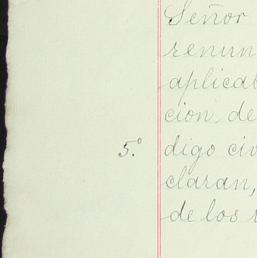 Señor
renun
aplicab
cion de
5.º digo civ
claran,
de los r